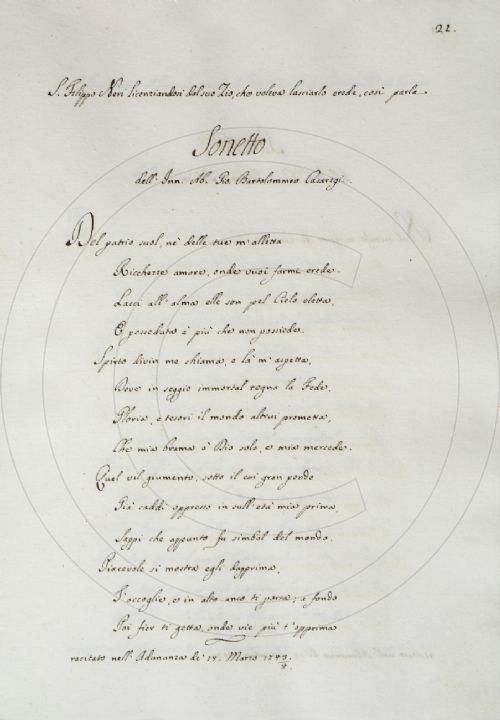 21.
S. Filippo Neri licenziandosi dal suo Zio, che voleva lasciarlo erede, così parla
Sonetto
dell' Inn. Ab. Gio. Bartolommeo Casaregi.
Del patrio suol, nè delle tue m'alletta
Ricchezze amore, onde vuoi farmi erede.
Lacci all' alma elle son pel Cielo eletta,
E posseduta è più che non possiede.
Spirto divin me chiama, e là m'aspetta,
Dove in seggio immortal regna la Fede.
Gloria, e tesori il mondo altrui prometta,
Che mia brama è Dio solo, e mia mercede.
Quel vil giumento, sotto il cui gran pondo
Già caddi oppresso in sull' età mia prima,
Sappi che appunto fu simbol del mondo.
Piacevole si mostra egli dapprima,
T'accoglie, e in alto anco ti porta; a fondo
Poi fier ti getta, onde vie più t'opprima
recitato nell' Adunanza de' Marzo